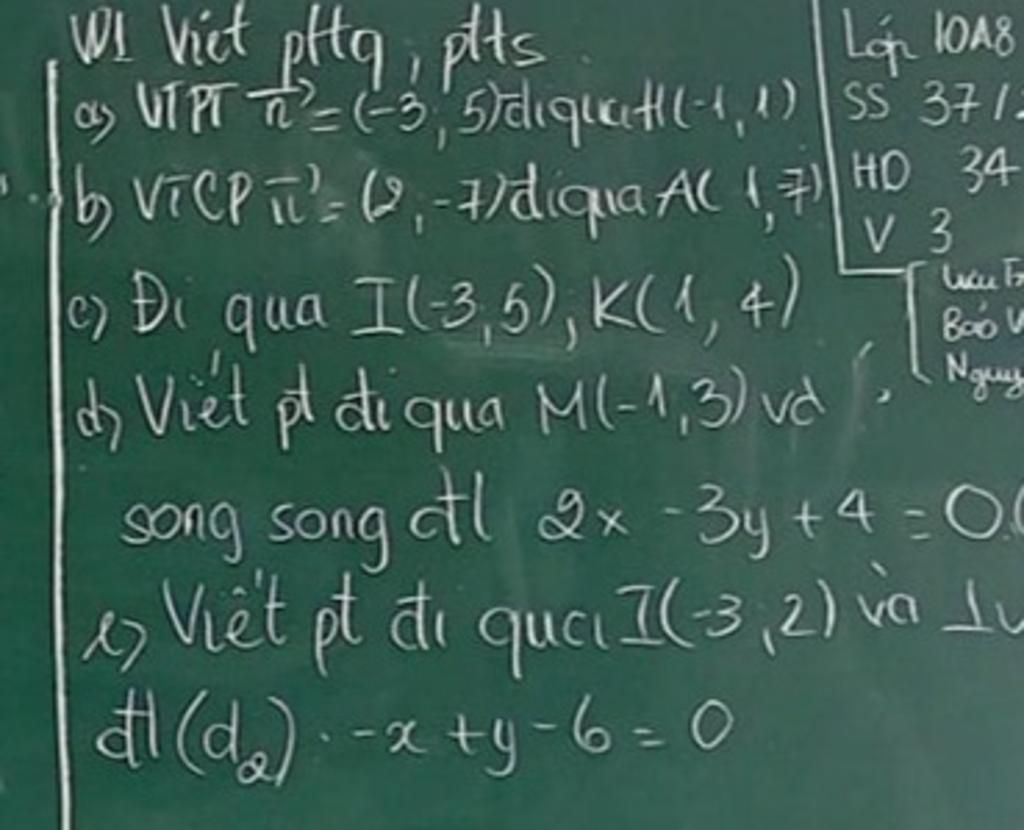 VD1 Viết pttq, ptts.
a) VTPT n⃗ = (-3, 5) đi qua H(-1, 1)
b) VTCP u⃗ = (2, -7) đi qua A( 1, 7)
c) Đi qua I(-3, 5), K(1, 4)
d) Viết pt đi qua M(-1, 3) và
song song đtl 2x - 3y + 4 = 0.
e) Viết pt đi qua I(-3, 2) và ⊥
đtl (d2) . -x + y - 6 = 0
Lớp 10A8
SS 37/
HD 34
V 3
Bảo